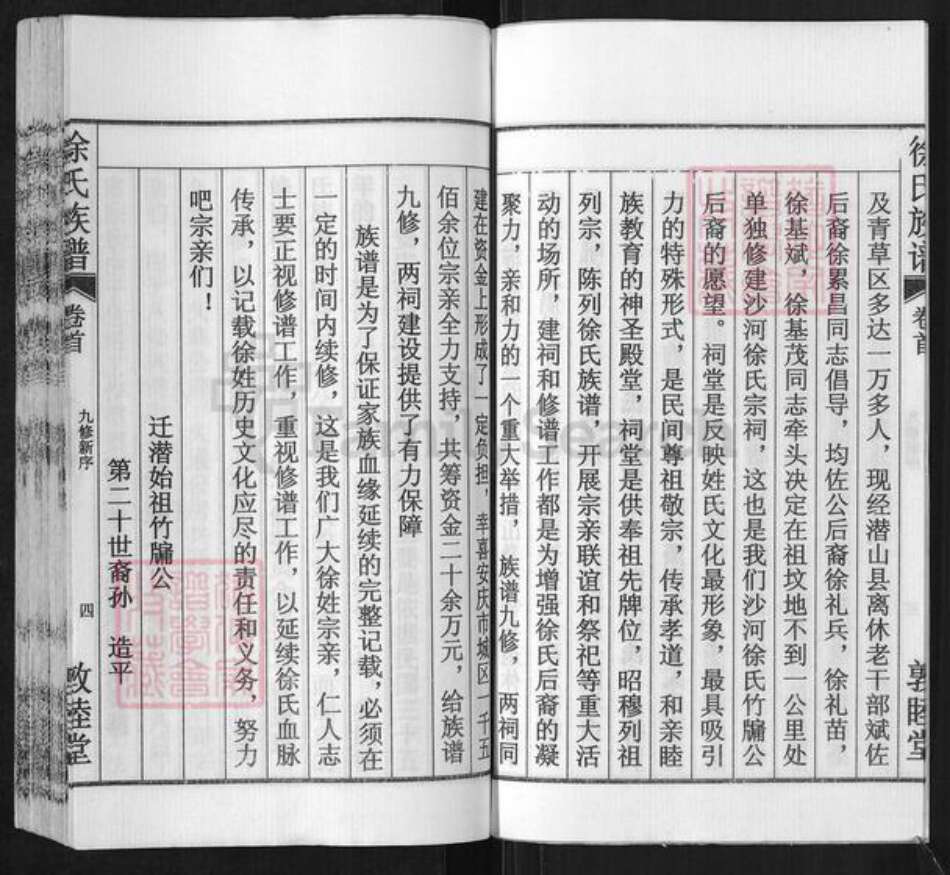 徐氏族谱
卷首
敦睦堂
及青草区多达一万多人，现经潜山县离休老干部斌佐
后裔徐累昌同志倡导，均佐公后裔徐礼兵，徐礼苗，
徐基斌，徐基茂同志牵头决定在祖坟地不到一公里处
单独修建沙河徐氏宗祠，这也是我们沙河徐氏竹牖公
后裔的愿望。祠堂是反映姓氏文化最形象，最具吸引
力的特殊形式，是民间尊祖敬宗，传承孝道，和亲睦
族教育的神圣殿堂，祠堂是供奉祖先牌位，昭穆列祖
列宗，陈列徐氏族谱，开展宗亲联谊和祭祀等重大活
动的场所，建祠和修谱工作都是为增强徐氏后裔的凝
聚力，亲和力的一个重大举措，族谱九修，两祠同
建在资金上形成了一定负担，幸喜安庆市城区一千五
佰余位宗亲全力支持，共筹资金二十余万元，给族谱
九修，两祠建设提供了有力保障
族谱是为了保证家族血缘延续的完整记载，必须在
一定的时间内续修，这是我们广大徐姓宗亲，仁人志
士要正视修谱工作，重视修谱工作，以延续徐氏血脉
传承，以记载徐姓历史文化应尽的责任和义务，努力
吧宗亲们！
迁潜始祖竹牖公
第二十世裔孙 造平
徐氏族谱
卷首
九修新序
四
敦睦堂